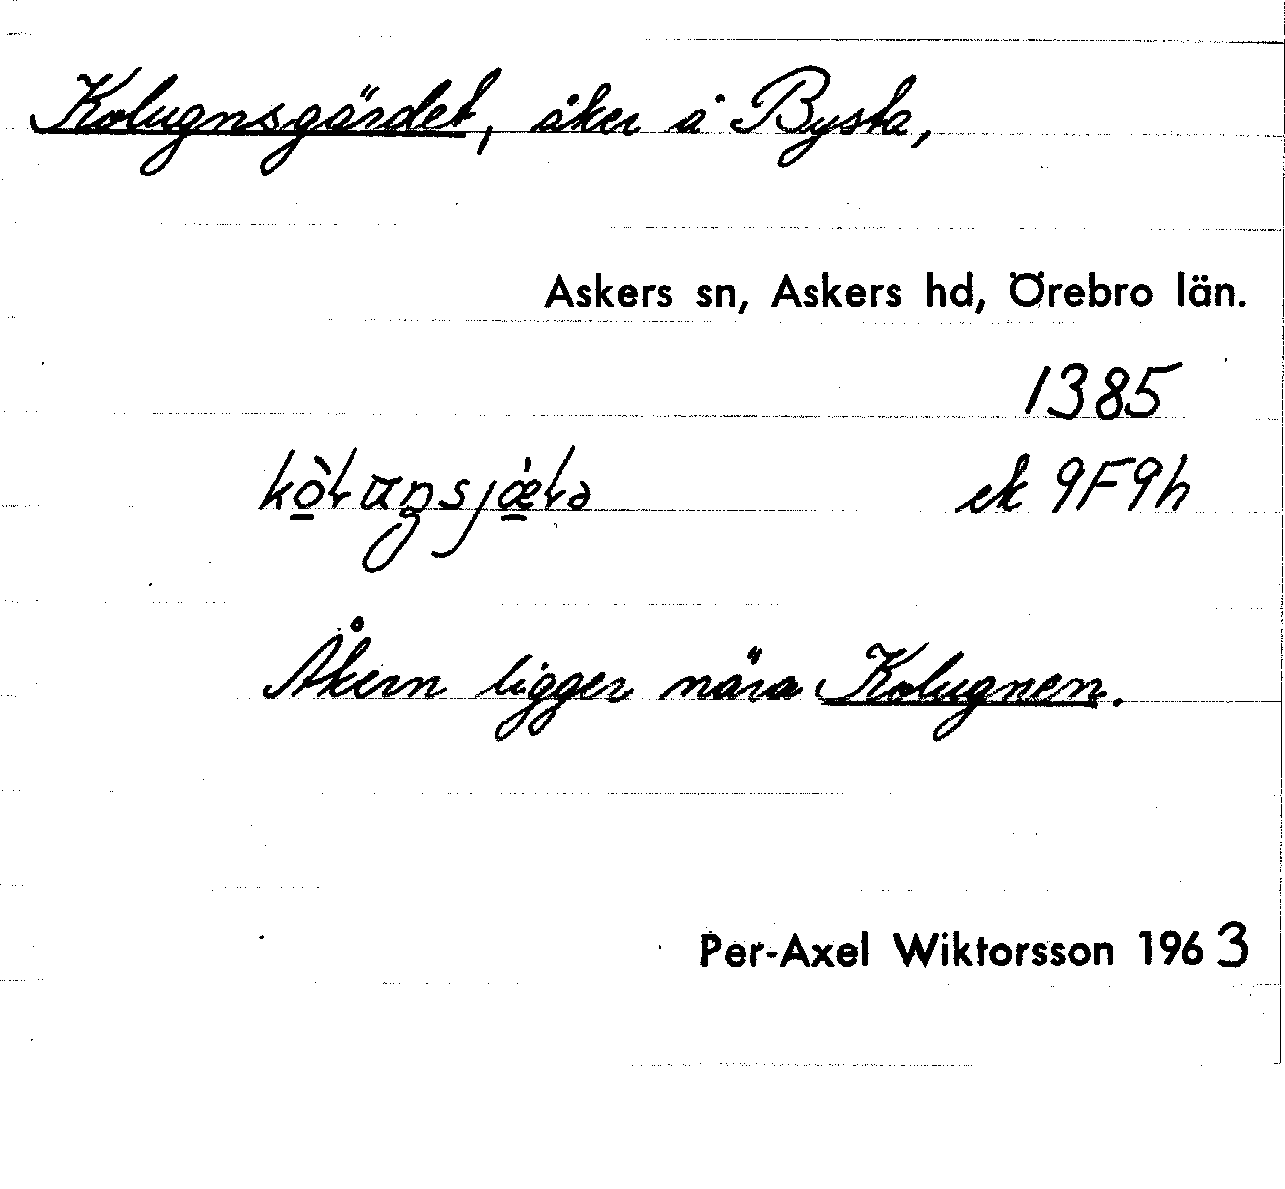 Kolugnsgärdet, åker å Bysta,
Askers sn, Askers hd, Örebro län.
1385
ek 9F9h
Åkern ligger nära Kolugnen.
Per-Axel Wiktorsson 1963